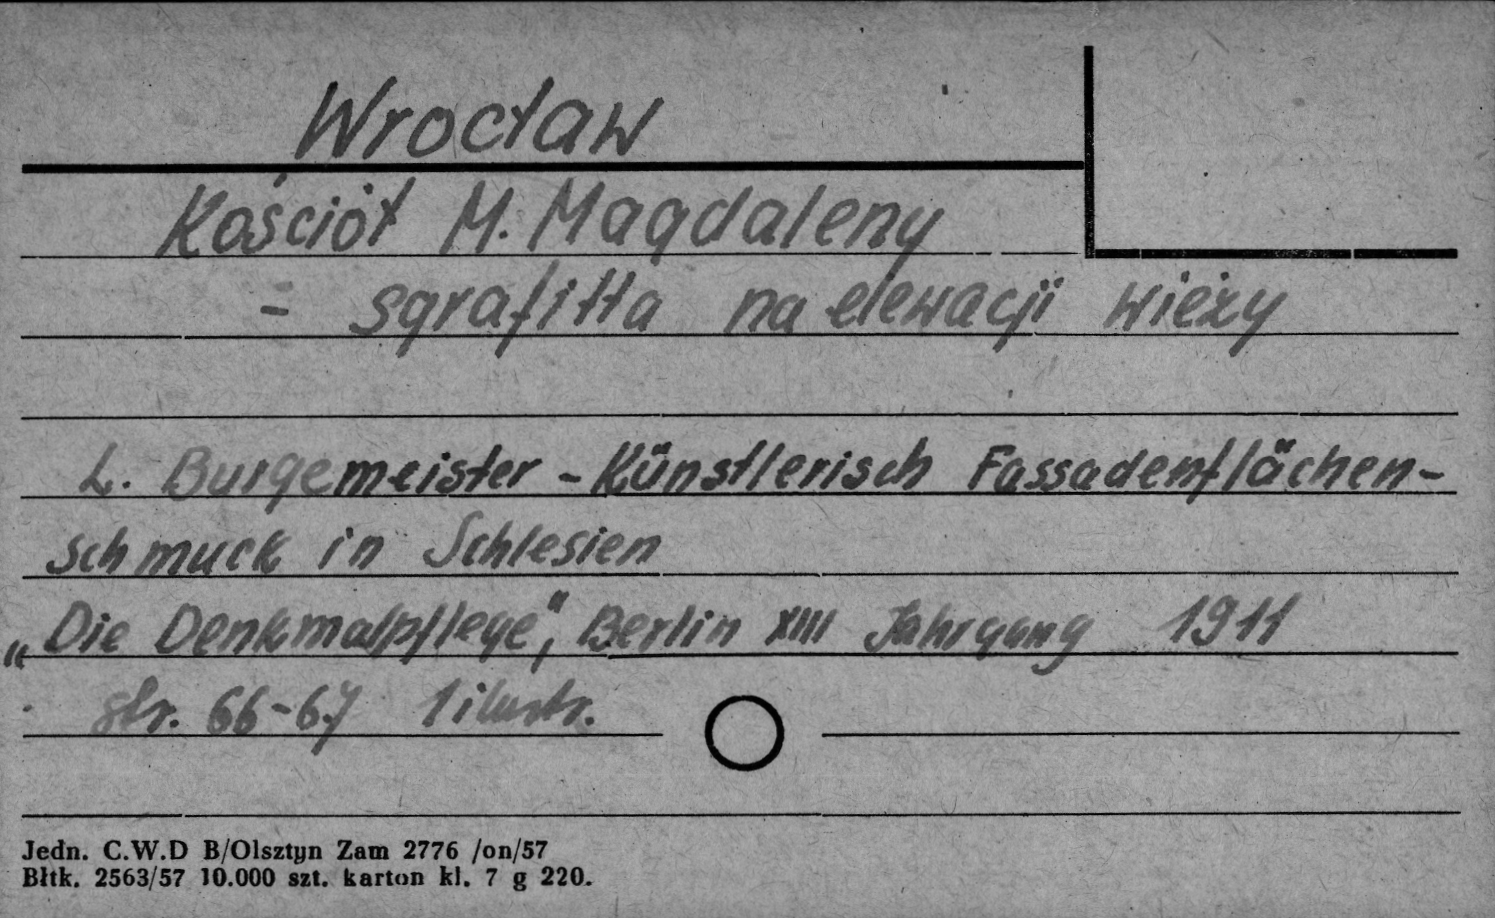 Wrocław
Kościół M. Magdaleny
= sgrafitta na elewacji wieży
L. Burgemeister - Künstlerisch Fassadenflächen-
schmuck in Schlesien
„Die Denkmalpflege", Berlin XIII Jahrgang 1911
str. 66-67 1 ilustr.
Jedn. C.W.D B/Olsztyn Zam 2776 /on/57
Błtk. 2563/57 10.000 szt. karton kl. 7 g 220.